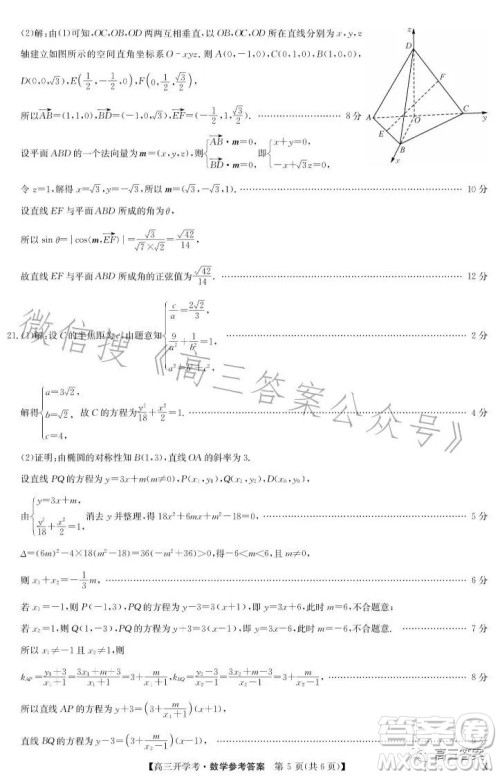 (2)解:由(1)可知,OC,OB,OD 两两互相垂直,以 OB,OC,OD 所在直线分别为 x,y,z
轴建立如图所示的空间直角坐标系 O-xyz. 则 A(0,-1,0),C(0,1,0),B(1,0,0),
D(0,0,√3),E(1/2,-1/2,0),F(0,1/2,√3/2),
所以AB=(1,1,0),BD=(-1,0,√3),EF=(-1/2,1,√3/2). 8 分
设平面 ABD 的一个法向量为 m=(x,y,z),则{AB·m=0, BD·m=0, 即{x+y=0, -x+√3z=0.
令 z=1,解得 x=√3,y=-√3,所以 m=(√3,-√3,1). 10 分
设直线 EF 与平面 ABD 所成的角为θ,
所以 sin θ=|cos⟨m,EF⟩|=√3/(√7×√2)=√42/14,
故直线 EF 与平面 ABD 所成角的正弦值为√42/14. 12 分
21.(1)解:设 C 的半焦距为 c,由题意知{c/a=2√2/3, 9/a²+1/b²=1, a²=b²+c², 2 分
解得{a=3√2, b=√2, c=4, 故 C 的方程为y²/18+x²/2=1. 4 分
(2)证明:由椭圆的对称性知 B(1,3),直线 OA 的斜率为 3.
设直线 PQ 的方程为 y=3x+m(m≠0),P(x₁,y₁),Q(x₂,y₂),D(x₀,y₀),
由{y=3x+m, y²/18+x²/2=1, 消去 y 并整理,得 18x²+6mx+m²-18=0, 5 分
Δ=(6m)²-4×18(m²-18)=36(-m²+36)>0,得-6<m<6,且 m≠0,
则 x₁+x₂=-1/3m, 6 分
若 x₁=-1,则 P(-1,3),PQ 的方程为 y-3=3(x+1),即 y=3x+6,此时 m=6,不合题意;
若 x₂=1,则 Q(1,-3),PQ 的方程为 y+3=3(x-1),即 y=3x-6,此时 m=-6,不合题意. 7 分
所以 x₁≠-1 且 x₂≠1,则
k_AP=(y₁+3)/(x₁+1)=(3x₁+m+3)/(x₁+1)=3+m/(x₁+1),k_BQ=(y₂-3)/(x₂-1)=(3x₂+m-3)/(x₂-1)=3+m/(x₂-1), 8 分
所以直线 AP 的方程为 y+3=(3+m/(x₁+1))(x+1),
直线 BQ 的方程为 y-3=(3+m/(x₂-1))(x-1),
【高三开学考·数学参考答案 第 5 页(共 6 页)】
D
F
A
O
C
y
E
B
x
微信搜《高三答案公众号》